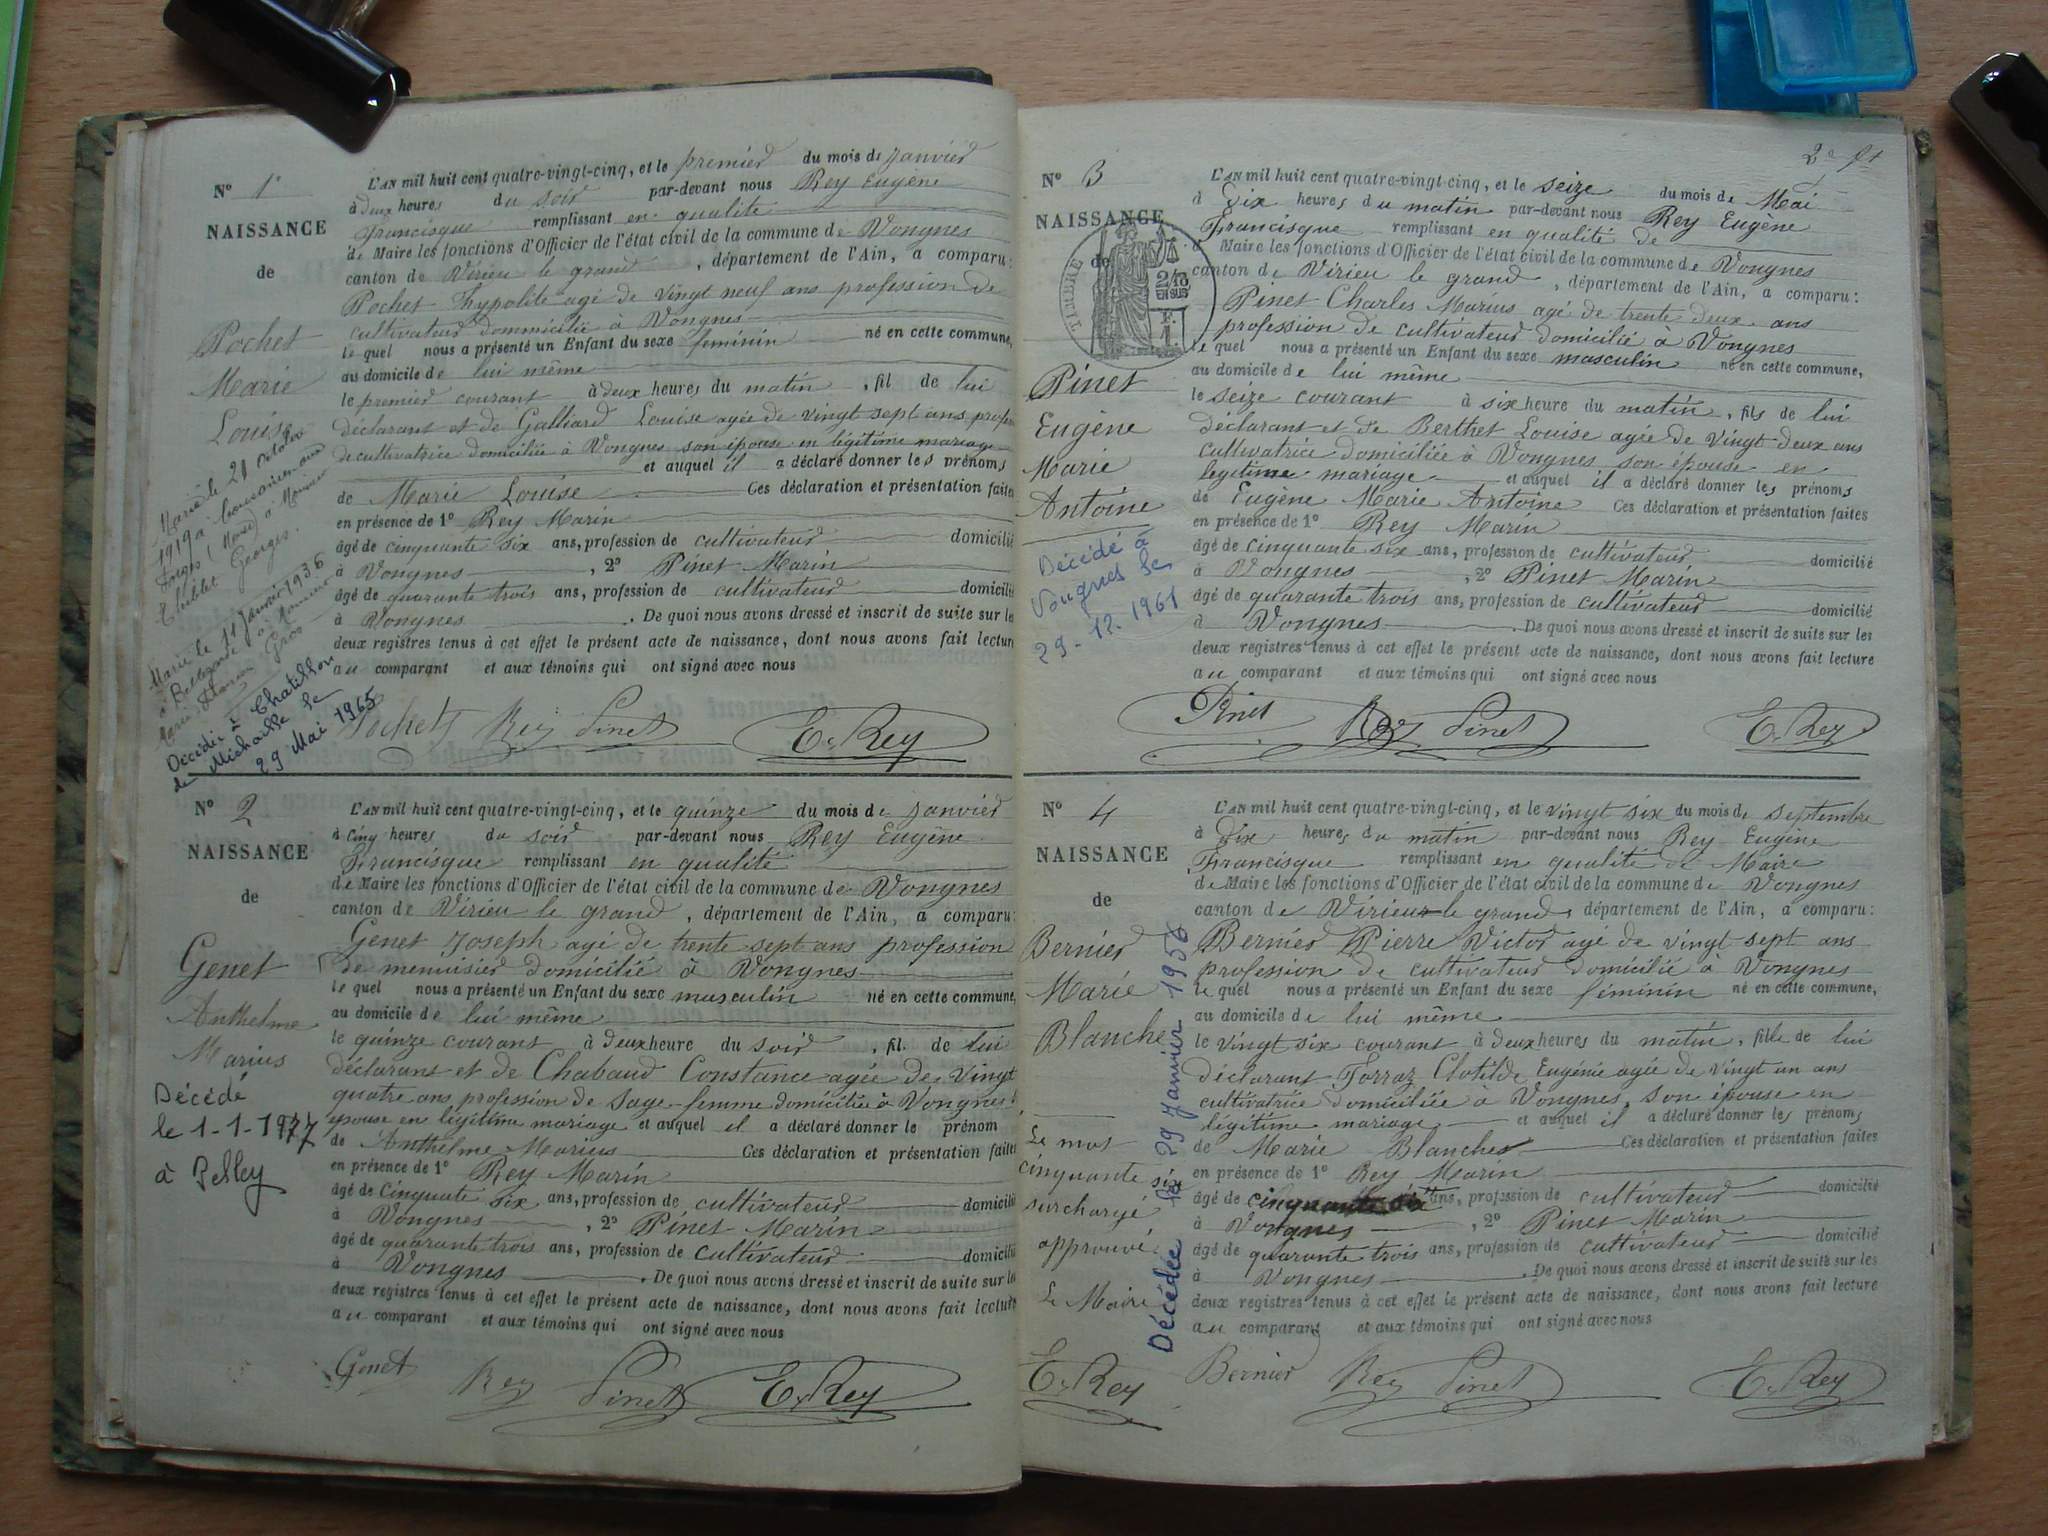 N° 1°
NAISSANCE
de
Pochet
Marie
Louise
Marié le 21 octobre
1919 à
Forges
Georges.
Marié le 11 Janvier 1936
à Bellegarde
Décédée à Chatillon
de Michaille le
29 Mai 1965
L'AN mil huit cent quatre-vingt-cinq, et le premier du mois de Janvier
à deux heures du soir par-devant nous Rey Eugène
Francisque remplissant en qualité
de Maire les fonctions d'Officier de l'état civil de la commune de Vongnes
canton de Virieu le grand, département de l'Ain, a comparu:
Pochet hypolite agé de vingt neuf ans profession de
cultivateur dommicilié à Vongnes
le quel nous a présenté un Enfant du sexe féminin né en cette commune,
au domicile de lui même
le premier courant à deux heures du matin, fil de lui
déclarant et de Galliard Louise agée de vingt sept ans profes
de cultivatrice domiciliée à Vongnes son épouse en légitime mariage
et auquel il a déclaré donner les prénoms
de Marie Louise Ces déclaration et présentation faites
en présence de 1° Rey Marin
âgé de cinquante six ans, profession de cultivateur domicilié
à Vongnes, 2° Pinet Marin
âgé de quarante trois ans, profession de cultivateur domicilié
à Vongnes. De quoi nous avons dressé et inscrit de suite sur les
deux registres tenus à cet effet le présent acte de naissance, dont nous avons fait lecture
au comparant et aux témoins qui ont signé avec nous
Pochet Rey Pinet E. Rey
N° 2
NAISSANCE
de
Genet
Anthelme
Marius
Décédé
le 1-1-1977
à Belley
L'AN mil huit cent quatre-vingt-cinq, et le quinze du mois de Janvier
à cinq heures du soir par-devant nous Rey Eugène
Francisque remplissant en qualité
de Maire les fonctions d'Officier de l'état civil de la commune de Vongnes
canton de Virieu le grand, département de l'Ain, a comparu:
Genet Joseph agé de trente sept ans profession
de menuisier domicilié à Vongnes
le quel nous a présenté un Enfant du sexe masculin né en cette commune,
au domicile de lui même
le quinze courant à deux heure du soir, fil de lui
déclarant et de Chabaud Constance agée de vingt
quatre ans profession de sage-femme domiciliée à Vongnes
épouse en légitime mariage et auquel il a déclaré donner le prénom
de Anthelme Marius Ces déclaration et présentation faites
en présence de 1° Rey Marin
âgé de Cinquate six ans, profession de cultivateur domicilié
à Vongnes, 2° Pinet Marin
âgé de quarante trois ans, profession de cultivateur domicilié
à Vongnes. De quoi nous avons dressé et inscrit de suite sur les
deux registres tenus à cet effet le présent acte de naissance, dont nous avons fait lecture
au comparant et aux témoins qui ont signé avec nous
Genet Rey Pinet E. Rey
2e ft
N° 3
NAISSANCE
de
TIMBRE
2/10
EN SUS
Pinet
Eugène
Marie
Antoine
Décédé à
Vongnes le
29-12-1961
L'AN mil huit cent quatre-vingt-cinq, et le seize du mois de Mai
à Dix heures du matin par-devant nous Rey Eugène
Francisque remplissant en qualité de
Maire les fonctions d'Officier de l'état civil de la commune de Vongnes
canton de Virieu le grand, département de l'Ain, a comparu:
Pinet Charles Marius agé de trente deux ans
profession de cultivateur domicilié à Vongnes
le quel nous a présenté un Enfant du sexe masculin né en cette commune,
au domicile de lui même
le seize courant à six heure du matin, fils de lui
déclarant et de Berthet Louise agée de vingt deux ans
cultivatrice domiciliée à Vongnes son épouse en
legitime mariage et auquel il a déclaré donner les prénoms
de Eugène Marie Antoine Ces déclaration et présentation faites
en présence de 1° Rey Marin
âgé de cinquante six ans, profession de cultivateur domicilié
à Vongnes, 2° Pinet Marin
âgé de quarante trois ans, profession de cultivateur domicilié
à Vongnes. De quoi nous avons dressé et inscrit de suite sur les
deux registres tenus à cet effet le présent acte de naissance, dont nous avons fait lecture
au comparant et aux témoins qui ont signé avec nous
Pinet Rey Pinet E. Rey
N° 4
NAISSANCE
de
Bernier
Marie
Blanche
Le mot
cinquante six
surchargé
approuvé
Le Maire
E. Rey
Décédée le 29 Janvier 1956
L'AN mil huit cent quatre-vingt-cinq, et le vingt six du mois de septembre
à Dix heures du matin par-devant nous Rey Eugène
Francisque remplissant en qualité de Maire
de Maire les fonctions d'Officier de l'état civil de la commune de Vongnes
canton de Virieu le grand, département de l'Ain, a comparu:
Bernier Pierre Victor agé de vingt sept ans
profession de cultivateur domicilié à Vongnes
le quel nous a présenté un Enfant du sexe féminin né en cette commune,
au domicile de lui même
le vingt six courant à deux heures du matin, fille de lui
déclarant Torraz Clotilde Eugénie agée de vingt un ans
cultivatrice domiciliée à Vongnes son épouse en
légitime mariage et auquel il a déclaré donner les prénoms
de Marie Blanche Ces déclaration et présentation faites
en présence de 1° Rey Marin
âgé de cinquante six ans, profession de cultivateur domicilié
à Vongnes, 2° Pinet Marin
âgé de quarante trois ans, profession de cultivateur domicilié
à Vongnes. De quoi nous avons dressé et inscrit de suite sur les
deux registres tenus à cet effet le présent acte de naissance, dont nous avons fait lecture
au comparant et aux témoins qui ont signé avec nous
Bernier Rey Pinet E. Rey